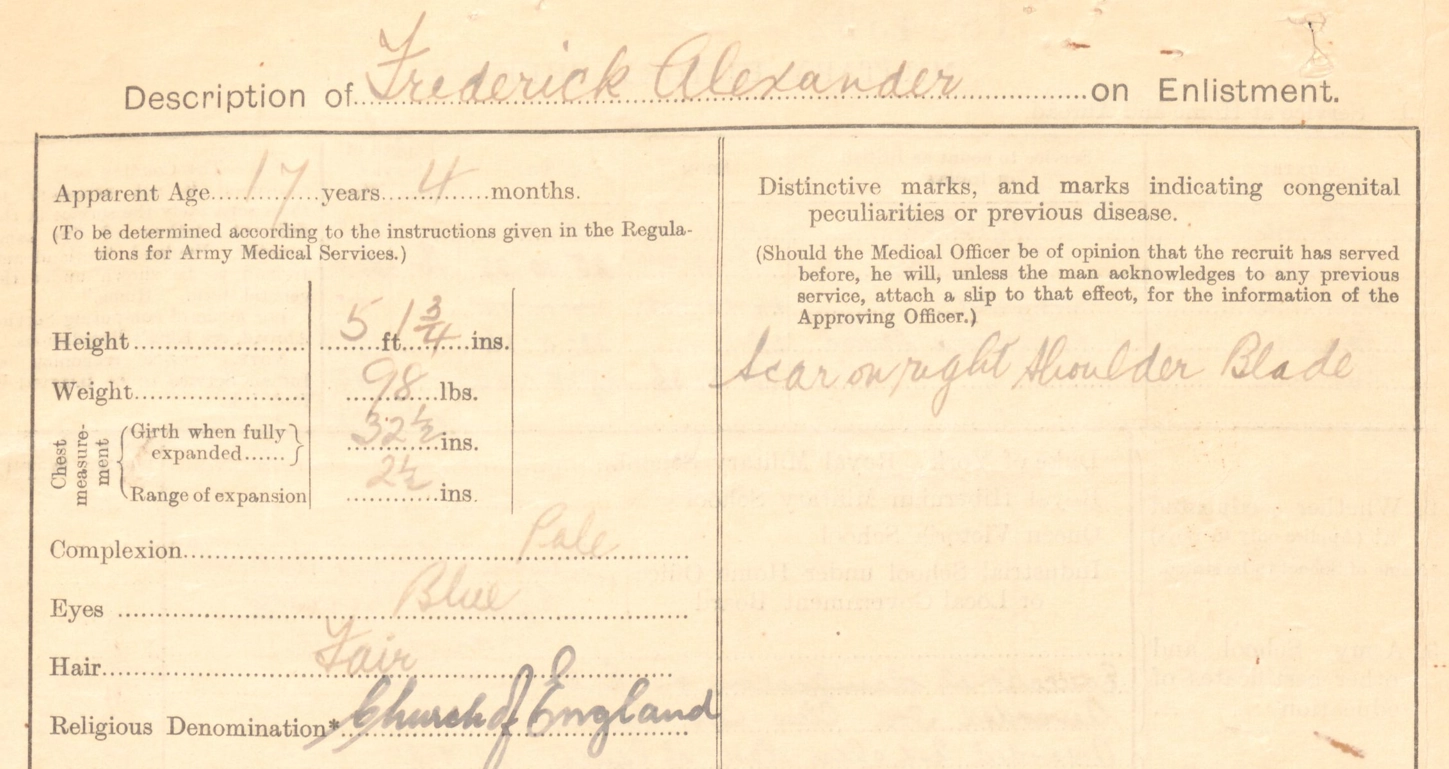 Description of Frederick Alexander on Enlistment.
Apparent Age 17 years 4 months.
(To be determined according to the instructions given in the Regula-
tions for Army Medical Services.)
Height 5 ft. 1 3/4 ins.
Weight 98 lbs.
Chest measure-ment
Girth when fully
expanded 32 1/2 ins.
Range of expansion 2 1/2 ins.
Complexion Pale
Eyes Blue
Hair Fair
Religious Denomination* Church of England
Distinctive marks, and marks indicating congenital
peculiarities or previous disease.
(Should the Medical Officer be of opinion that the recruit has served
before, he will, unless the man acknowledges to any previous
service, attach a slip to that effect, for the information of the
Approving Officer.)
Scar on right Shoulder Blade